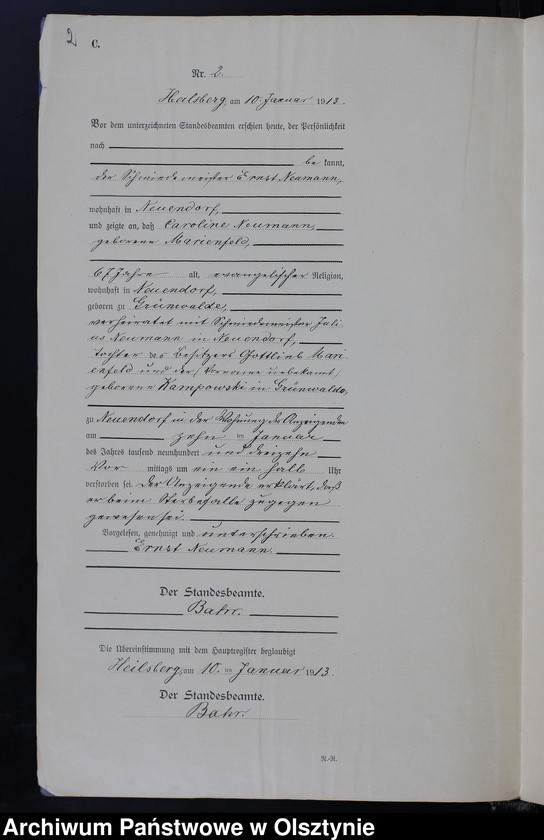 2
C.
Nr. 2.
Heilsberg, am 10. Januar 1913.
Vor dem unterzeichneten Standesbeamten erschien heute, der Persönlichkeit
nach
be kannt,
der Schmiedemeister Ernst Neumann,
wohnhaft in Neuendorf,
und zeigte an, daß Caroline Neumann,
geborene Marienfeld,
67 Jahre alt, evangelischer Religion,
wohnhaft in Neuendorf,
geboren zu Grünwalde,
verheiratet mit Schmiedemeister Juli
us Neumann in Neuendorf,
Tochter des Besitzers Gottlieb Mari
enfeld und der (Vorname unbekannt)
geborene Kampowski in Grünwalde,
zu Neuendorf in der Wohnung des Anzeigenden
am zehn ten Januar
des Jahres tausend neunhundert und dreizehn
Vor mittags um ein ein halb Uhr
verstorben sei. Der Anzeigende erklärt, daß
er beim Sterbefalle zugegen
gewesen sei.
Vorgelesen, genehmigt und unterschrieben.
Ernst Neumann.
Der Standesbeamte.
Bahr.
Die Übereinstimmung mit dem Hauptregister beglaubigt
Heilsberg, am 10. ten Januar 1913.
Der Standesbeamte.
Bahr.
R.-R.
Archiwum Państwowe w Olsztynie